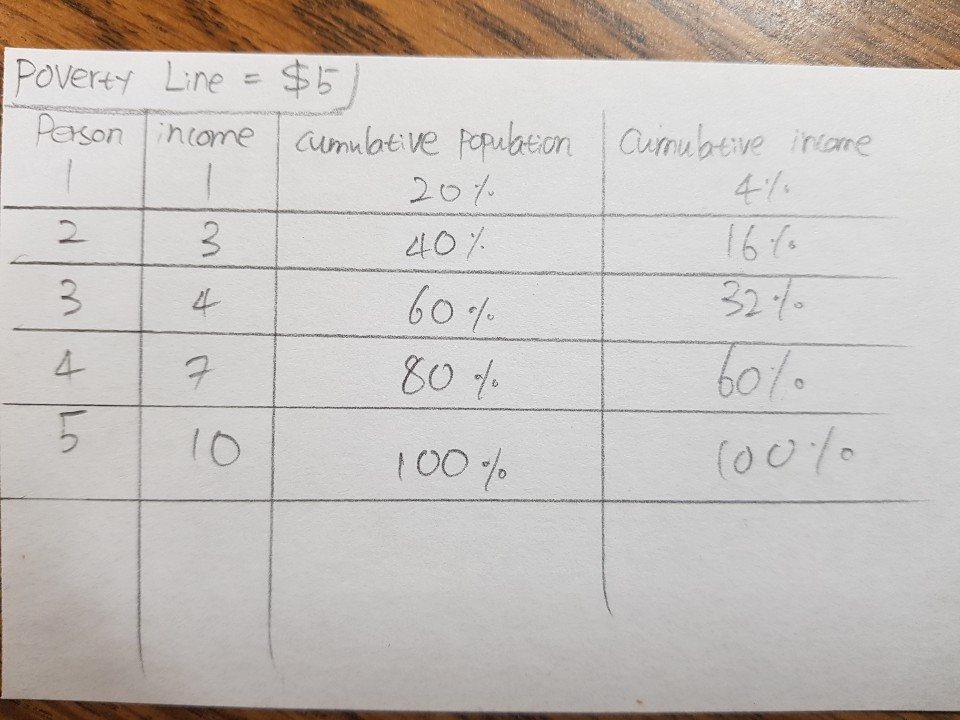 Poverty Line = $5
Person income Cumulative population Cumulative income
1 1 20% 4%
2 3 40% 16%
3 4 60% 32%
4 7 80% 60%
5 10 100% 100%